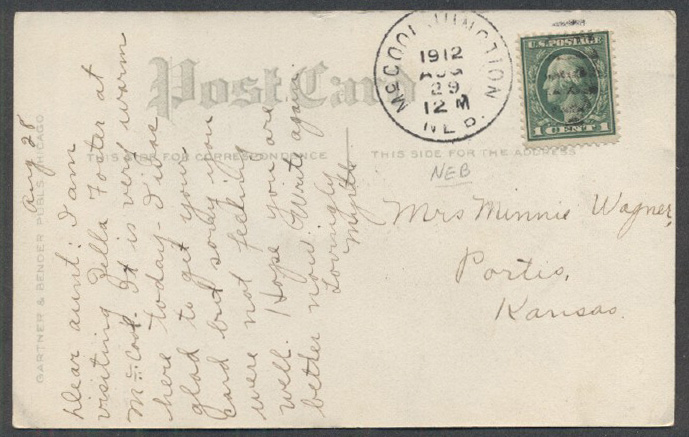 Post Card
THIS SIDE FOR CORRESPONDENCE
THIS SIDE FOR THE ADDRESS
GARTNER & BENDER PUBLS CHICAGO
McCOOL JUNCTION
1912
AUG
29
12 M
NEB.
U.S. POSTAGE
1 CENT 1
NEB
Mrs Minnie Wagner,
Portis,
Kansas.
Aug 28
Dear aunt: I am
visiting Della Foster at
McCool. It is very warm
here today - I was
glad to get your
card but sorry you
were not feeling
well. Hope you are
better now. Write again
Lovingly
Myrtle